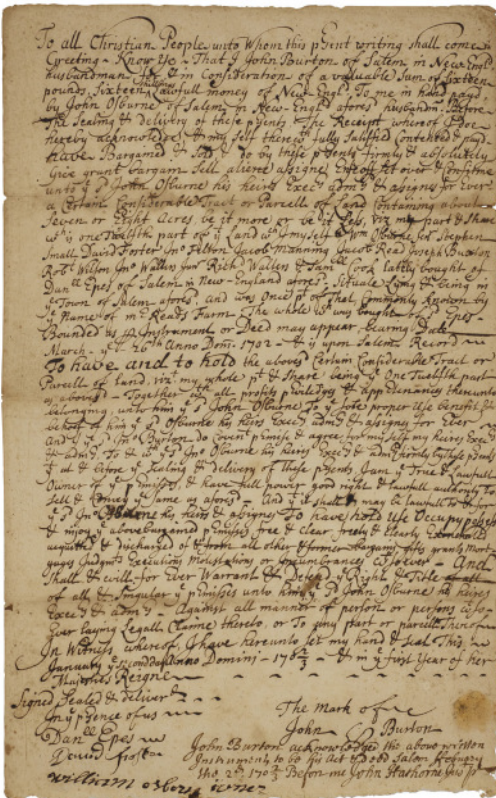 To all Christian People unto Whom this pSent writing shall come
Greeting - Know Ye - That I John Burton of Salem in New-Engld
husbandman for & in Consideration of a valuable Sum of Sixteen
pounds, Sixteen shillings Lawfull money of New-Engld To me in hand payd
by John Osburne of Salem in New-Engld aforesd husbandm Before
the Sealing & delivery of these pSents The Receipt whereof I doe
hereby acknowledge & my self therewth fully Satisfied Contented & payd
have Bargained & Sold & do by these pSents firmly & absolutely
Give grant bargain Sell aliene assigne Enfeoff set over & Confirme
unto ye sd John Osburne his heirs Execrs admrs & assigns for Ever
a Certain Considerable Tract or Parcell of Land Containing about
Seven or Eight Acres be it more or be it less, viz my part & Share
wch is one Twelfth part of ye Land wch I my self & Wm Osburne Senr Stephen
Small David Forster Jno Felton Jacob Manning Jacob Read Joseph Buxton
Robt Wilson Jno Walters junr Richd Walters & Samll Cook lately bought of
Danll Epes of Salem in New-England aforesd Situate Lying & being in
ye Town of Salem aforesd and was Once pt of That Commonly Known by
ye Name of mr Reads Farm. The whole is wn bought of sd Epes -
Bounded as ye Instrument or Deed may appear bearing Date
March - ye 26th Anno Dom: 1702 - & is upon Salem Record
To have and to hold the abovesd Certain Considerable Tract or
Parcell of Land, viz: my whole pt & Share being ye One Twelfth part
as abovesd - Together wth all profits priviledges & appurtenances thereunto
belonging unto him ye sd John Osburne To ye Sole proper Use benefit &
behoof of him ye sd Osburne his heirs Execrs admrs & assigns for Ever
And I ye sd Jno Burton do Covent pmise & agree for my self my heires Execrs
& admrs To & wth ye sd Jno Osburne his heirs Execrs & admrs firmly by these pSents
yt at & before ye Sealing & delivery of these pSents I am ye True & Lawfull
Owner of ye pmisses, & have full power good right & lawfull authority to
Sell & Convey ye Same as aforesd - And yt it shall & may be lawfull to & for
ye sd Jno Osburne his heirs & assignes To have hold Use Occupy possess
& injoy ye abovebargained pmisses free & Clear freely & clearly Exonerated
acquitted & discharged of & from all other & former bargains gifts grants Mort-
gages Judgmts Executions Molestations or Incumbrances wtsoever - And
Shall & will for Ever Warrant & Defend ye Right & Title
of all & Singular ye pmisses unto him ye sd John Osburne his heires
Execrs & admrs - Against all manner of person or persons wtso-
Ever laying Legall Claime thereto or To any part or parcell Thereof
In Witness whereof, I have hereunto set my hand & Seal This
January ye second day Anno Domini - 1702/3 - & in ye first Year of her
Majesties Reigne
Signed Sealed & deliverd
In ye pSence of us
The Mark of
John Burton
Danll Epes
David
John Burton acknowledged the above written
Instrument to be his Act & deed Salem
the 2d 1702/3 Before me John Hathorne Jus pc
William